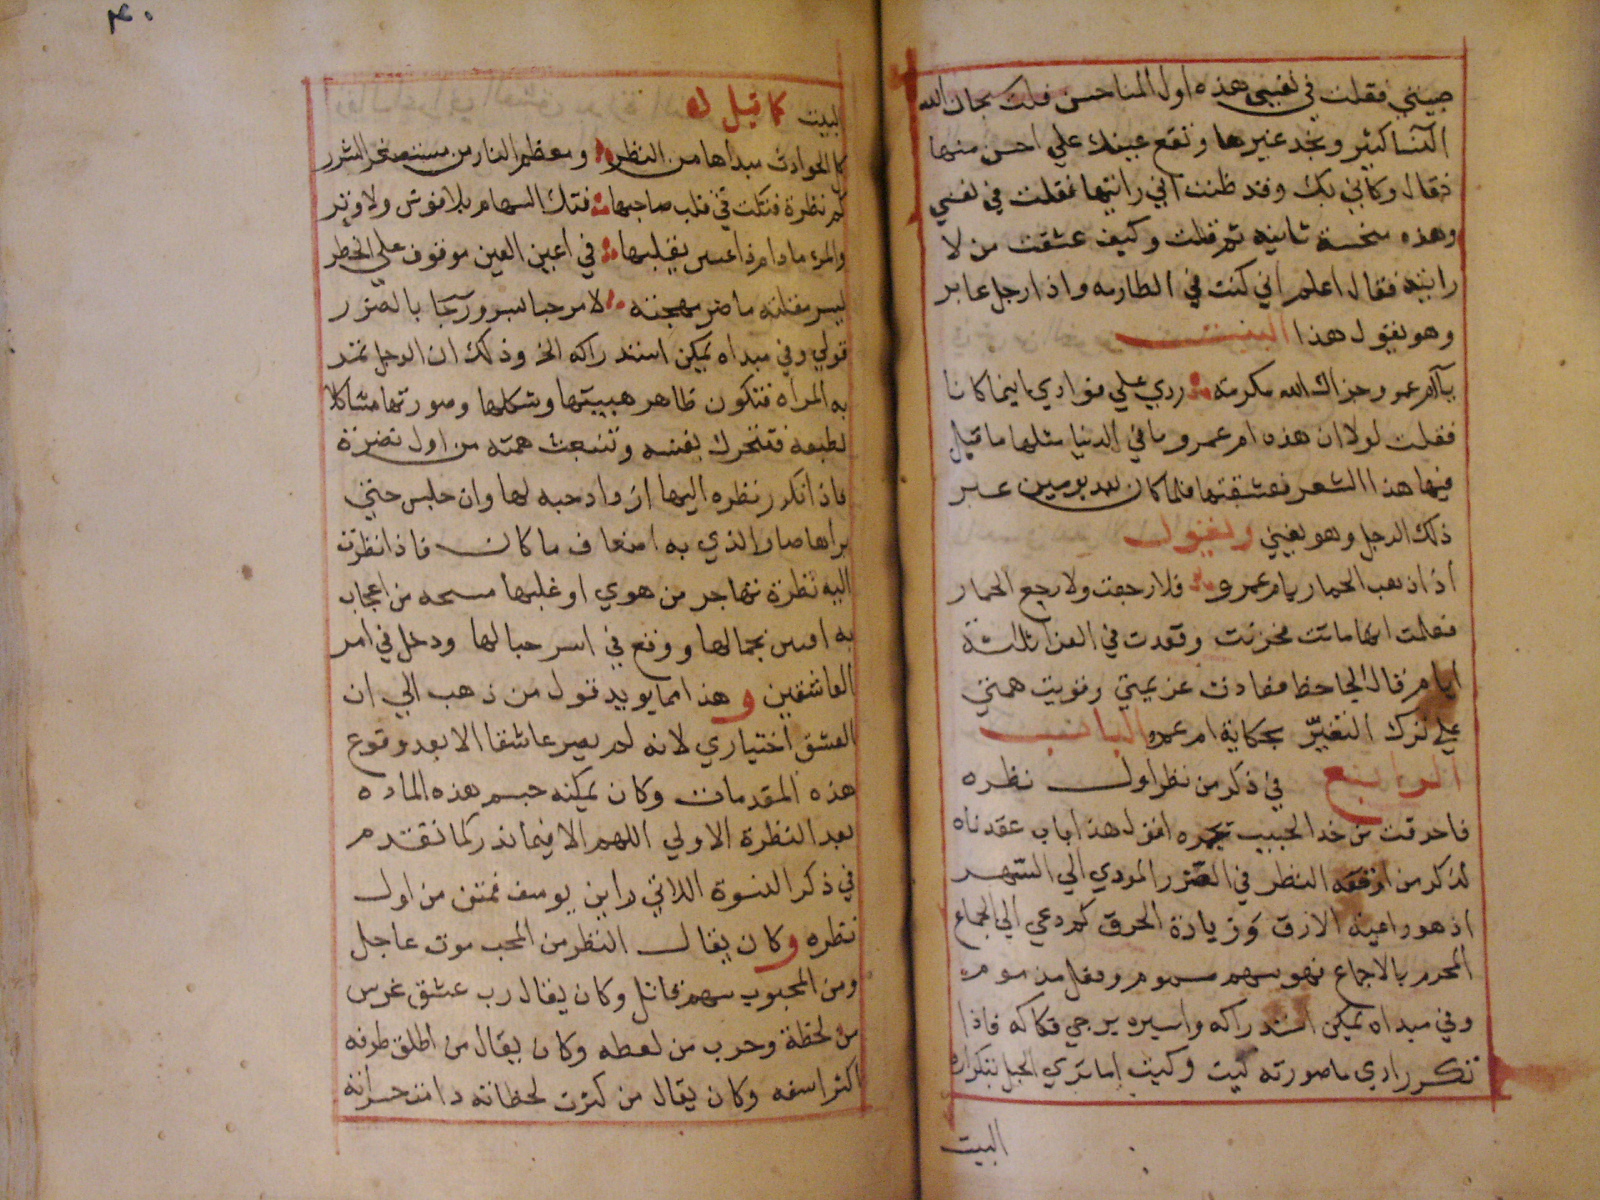 جيبني فقلت في نفسي هذه اول المناحس فقلت سبحان الله
النسا كثير وتجد غيرها وتقع عينك علي احسن منها
فقال وكاني بك وقد ظننت اني رايتها فقلت في نفسي
وهذه منحسة ثانيه ثم قلت وكيف عشقت من لا
رايته فقال اعلم اني كنت في الطارمه واذا رجل عابر
وهو يقول هذا البيت
يا ام عمرو جزاك الله مكرمة ردي علي فوادي اينما كانا
فقلت لولا ان هذه ام عمرو ما في الدنيا مثلها ما قيل
فيها هذا الشعر فعشقتها فلما كان بعد يومين عبر
ذلك الرجل وهو يغني ويقول
اذا ذهب الحمار بام عمرو فلا رجعت ولا رجع الحمار
فعلمت انها ماتت فحزنت وقعدت في العزا ثلثة
ايام قال الجاحظ فعادت عزيمتي وقويت همتي
علي ترك التغير بحكاية ام عمرو الباب
الرابع في ذكر من نظر اول نظره
فاحرقت من خد الحبيب بجمره اقول هذا باب عقدناه
لذكر من اوقعه النظر في الضرر المودي الي السهر
اذ هو راعية الارق وزيادة الحرق كم دعي الي الجماع
المحرم بالاجماع فهو سهم مسموم وفعل مذموم
وفي مبداه يمكن استدراكه واسيره يرجي فكاكه فاذا
تكرر ادي ما صورته كيت وكيت اما تري الحبل بتكراره
البيت
٣٠
البيت كما قيل
كل الحوادث مبداها من النظر ومعظم النار من مستصغر الشرر
كم نظرة فتكت في قلب صاحبها فتك السهام بلا قوس ولا وتر
والمرء ما دام ذا عين يقلبها في اعين العين موقوف علي الخطر
يسر مقلته ما ضر مهجته لا مرحبا بسرور جا بالضرر
قولي وفي مبداه يمكن استدراكه الخ وذلك ان الرجل تمر
به المراه فتكون ظاهر هيبتها وشكلها وصورتها مشاكلا
لطبعه فتتحرك نفسه وتنبعث همته من اول نضرة
فاذا تكرر نظره اليها ازداد حبه لها وان جلس حتي
يراها صار الذي به اضعاف ما كان فاذا نظرت
اليه نظرة تهاجر من هوي او غلبها مسحه من اعجاب
به افتتن بجمالها ووقع في اسر حبالها ودخل في امر
العاشقين وهذا مما يويد قول من ذهب الي ان
العشق اختياري لانه لم يصر عاشقا الا بعد وقوع
هذه المقدمات وكان يمكنه حسم هذه الماده
بعد النظرة الاولي اللهم الا فيما نذر كما تقدم
في ذكر النسوة اللاتي راين يوسف فمتن من اول
نظره وكان يقال النظر من المحب موت عاجل
ومن المحبوب سهم قاتل وكان يقال رب عشق غرس
من لحظة وحرب من لفظه وكان يقال من اطلق طرفه
اكثر اسفه وكان يقال من كثرت لحظاته دامت حسراته